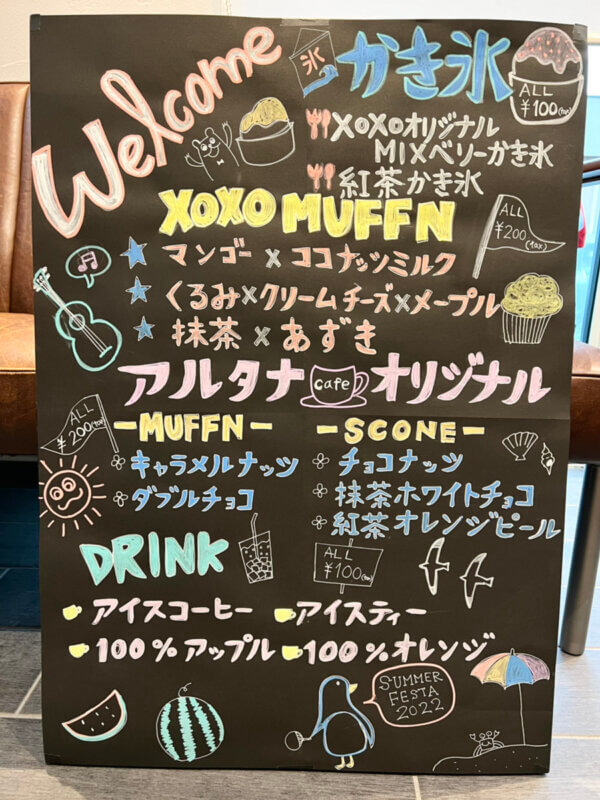 Welcome
氷
かき氷
ALL
¥100(tax)
XOXOオリジナル
MIXベリーかき氷
紅茶かき氷
XOXO MUFFN
ALL
¥200(tax)
マンゴー×ココナッツミルク
くるみ×クリームチーズ×メープル
抹茶×あずき
アルタナ cafe オリジナル
ALL
¥200(tax)
-MUFFN-
キャラメルナッツ
ダブルチョコ
-SCONE-
チョコナッツ
抹茶ホワイトチョコ
紅茶オレンジピール
DRINK
ALL
¥100(tax)
アイスコーヒー
アイスティー
100%アップル
100%オレンジ
SUMMER
FESTA
2022